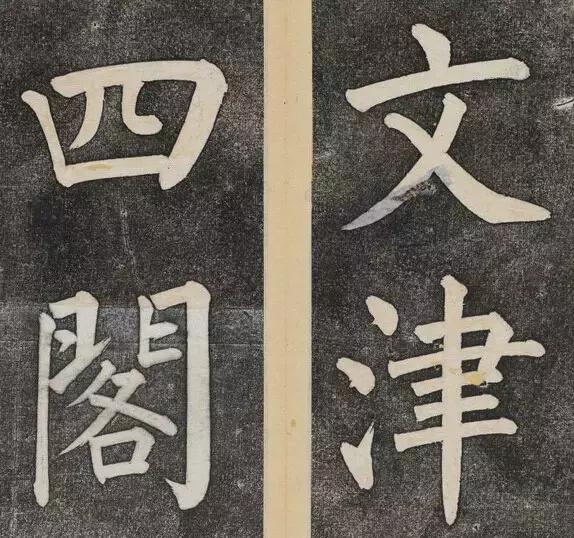 文津
四閣